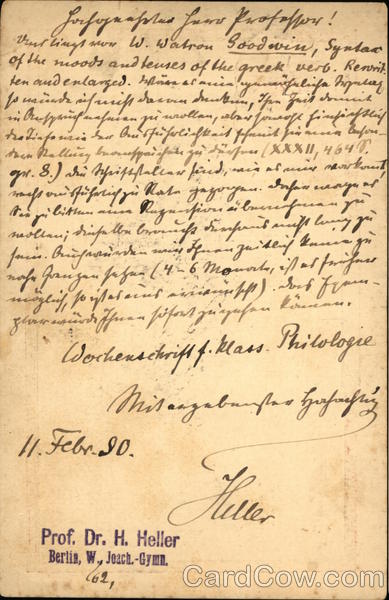 Hochgeehrter Herr Professor!
Uns liegt vor W. Watson Goodwin, Syntax
of the moods and tenses of the greek verb. Rewrit-
ten and enlarged. Wäre es eine gewöhnliche Syntax,
so würde ich nicht daran denken, Ihre Zeit damit
in Anspruch nehmen zu wollen, aber sowohl hinsichtlich
der als der Ausführlichkeit scheint sie eine beson-
dere Stellung beanspruchen zu dürfen (XXXII, 464 S.
gr. 8.) die Schriftsteller sind, wie es mir vorkommt,
recht ausführlich zu Rate gezogen. Daher wage ich
Sie zu bitten eine Rezension übernehmen zu
wollen; dieselbe braucht durchaus nicht lang zu
sein. Auch würden wir Ihnen zeitlich keine zu
nahe Grenzen setzen (4-6 Monate, ist es früher
möglich, so ist es uns erwünscht). Das Exem-
plar würde Ihnen sofort zugehen können.
Wochenschrift f. klass. Philologie
Mit ergebenster Hochachtung
11 Febr. 90.
Heller
Prof. Dr. H. Heller
Berlin, W., Joach.-Gymn.
62,
CardCow.com